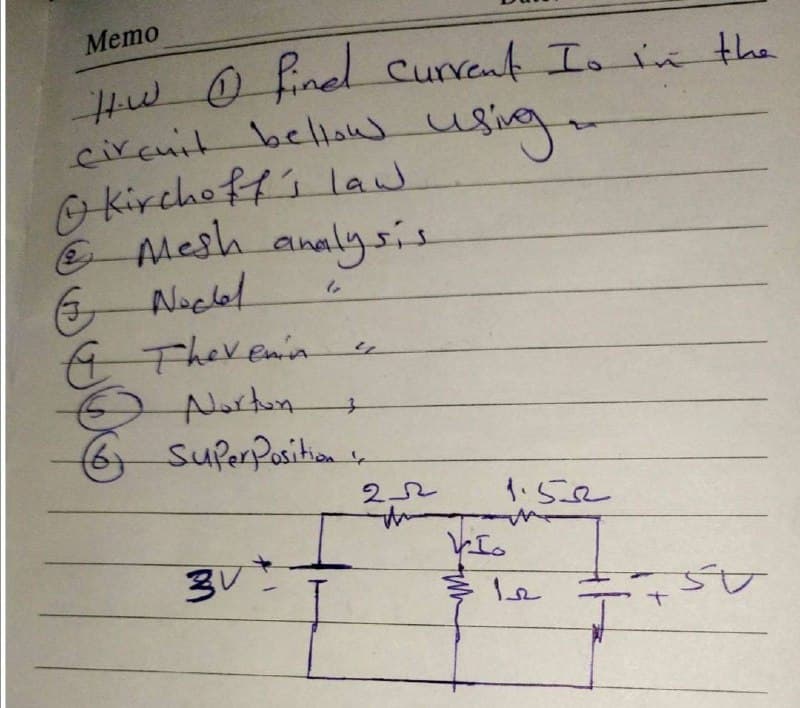 Memo
H.W ① find current Io in the
circuit bellow using
① Kirchoff's law
② Mesh analysis
③ Nodel "
④ Thevenin "
⑤ Norton "
⑥ SuperPosition "
2Ω 1.5Ω
Io
3V + - 1Ω - + 5V